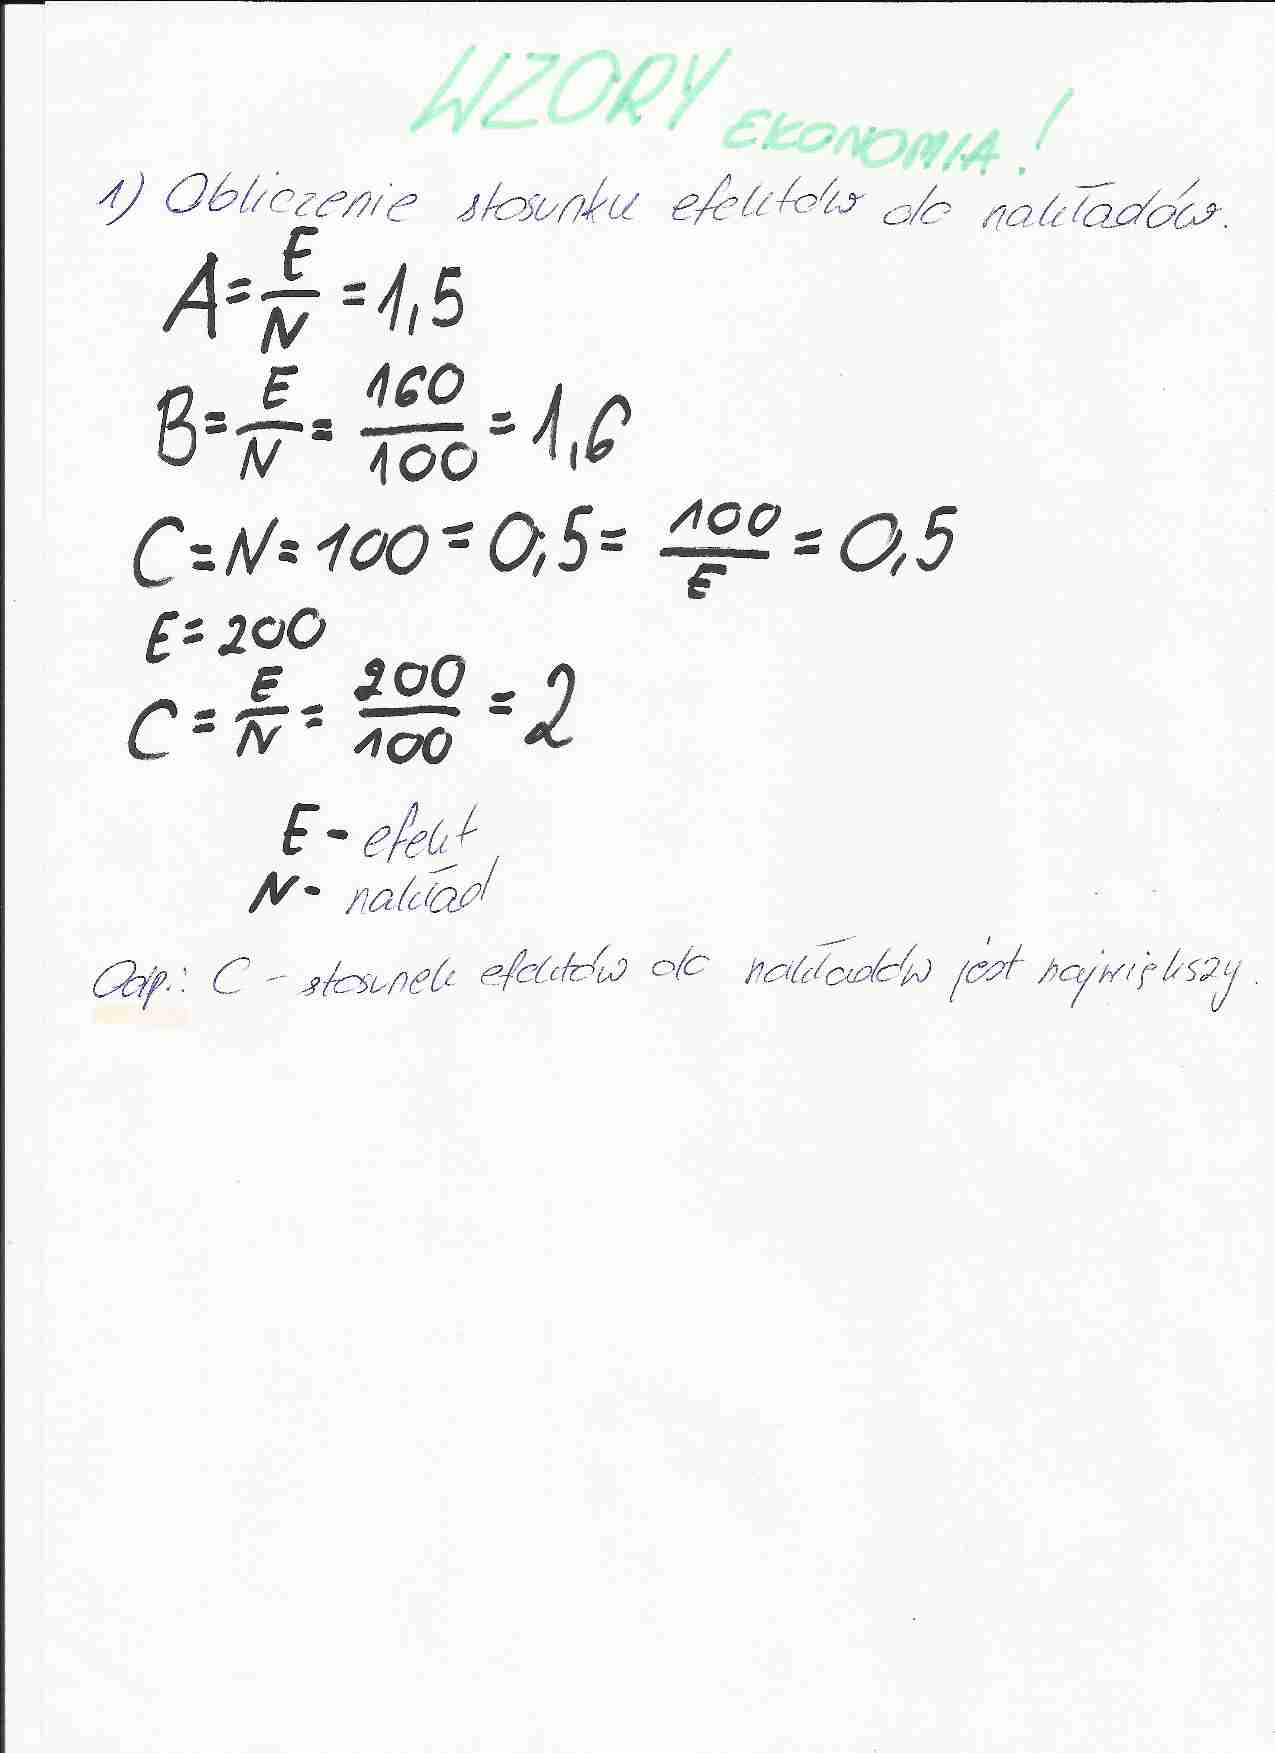 WZORY EKONOMIA!
1) Obliczenie stosunku efektów do nakładów.
A = E/N = 1,5
B = E/N = 160/100 = 1,6
C = N = 100 = 0,5 = 100/E = 0,5
E = 200
C = E/N = 200/100 = 2
E - efekt
N - nakład
Odp.: C - stosunek efektów do nakładów jest największy.